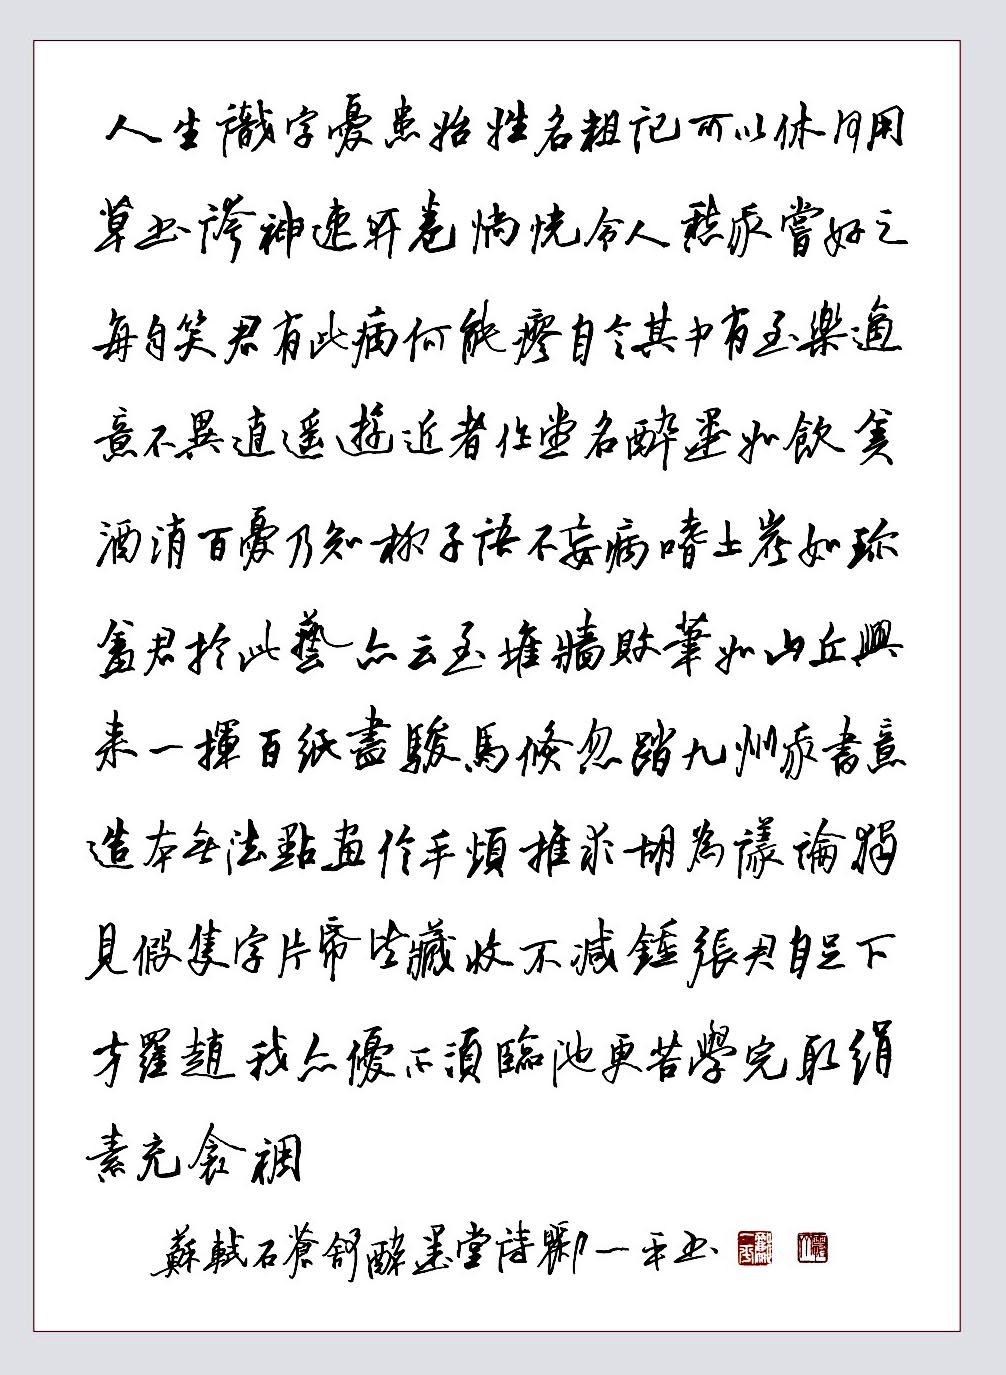 人生識字憂患始姓名粗記可以休何用
草书誇神速开卷惝恍令人愁我嘗好之
每自笑君有此病何能瘳自言其中有至樂適
意不異逍遥遊近者作堂名醉墨如飲美
酒消百憂乃知柳子語不妄病嗜土炭如珍
羞君於此藝亦云至堆牆敗筆如山丘興
来一揮百紙盡駿馬倏忽踏九州我書意
造本無法點畫信手煩推求胡為議論獨
見假隻字片紙皆藏收不減錘張君自足下
方羅趙我亦優不須臨池更苦學完取絹
素充衾裯
蘇軾石蒼舒醉墨堂詩劉一平书